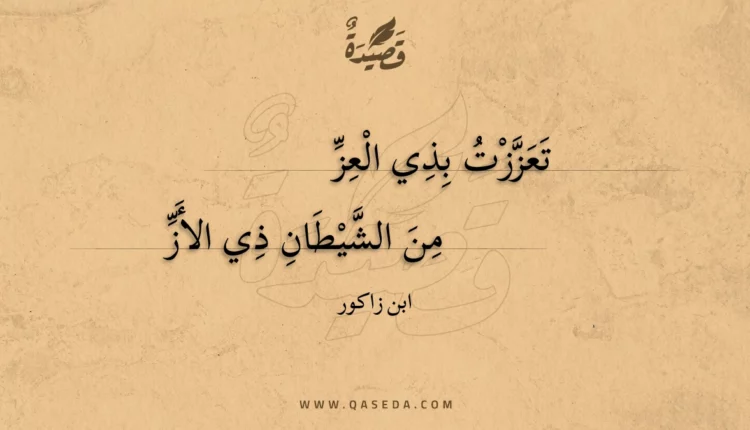 قَصِيدَةٌ
تَعَزَّزْتُ بِذِي الْعِزِّ
مِنَ الشَّيْطَانِ ذِي الأَزِّ
ابن زاكور
WWW.QASEDA.COM